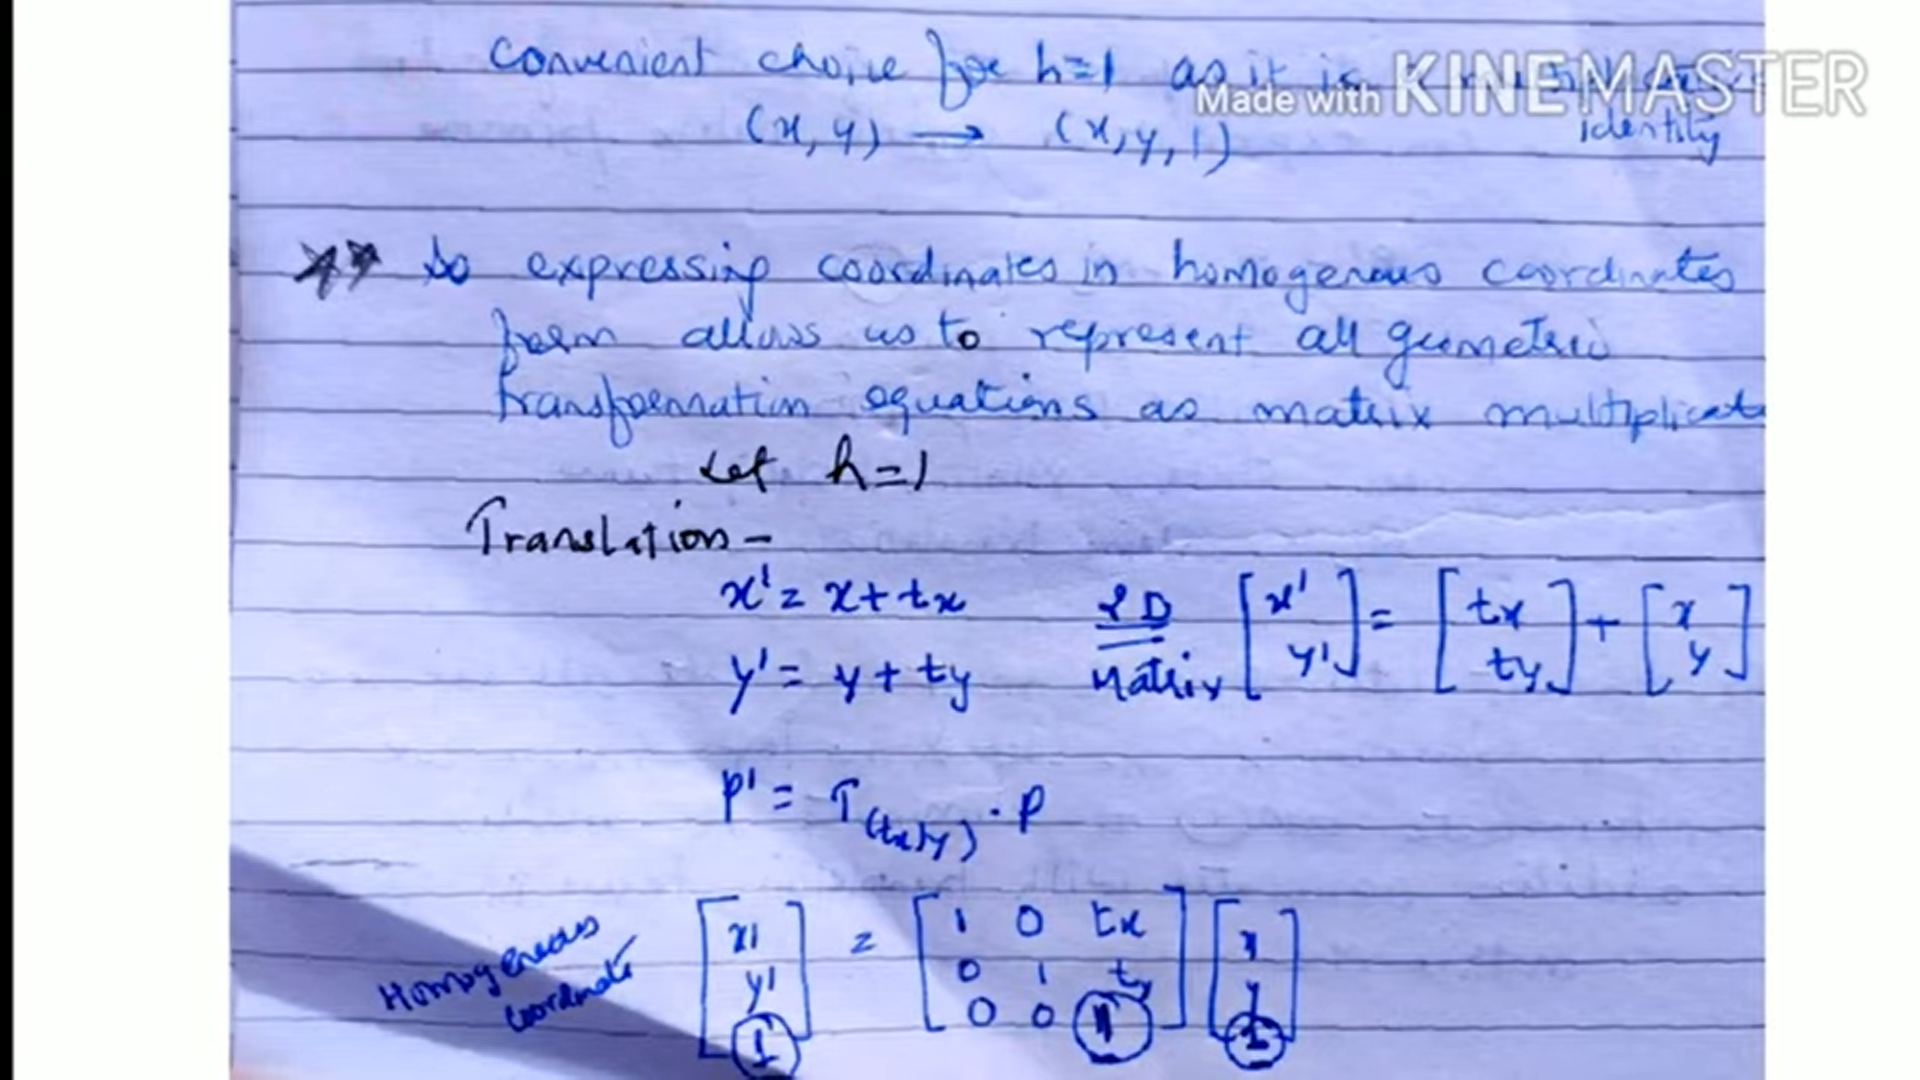 convenient choice for h=1 as it is
Made with KINEMASTER
(x, y) → (x, y, 1) identity
So expressing coordinates in homogeneous coordinates
form allows us to represent all geometric
transformation equations as matrix multiplicat
Let h=1
Translation -
x' = x + tx 2D [x' = [tx + [x
y' = y + ty Matrix y'] ty] y]
P' = T(tx,ty) . P
Homogeneous coordinate
[x' = [1 0 tx [x
y' 0 1 ty y
1] 0 0 1] 1]